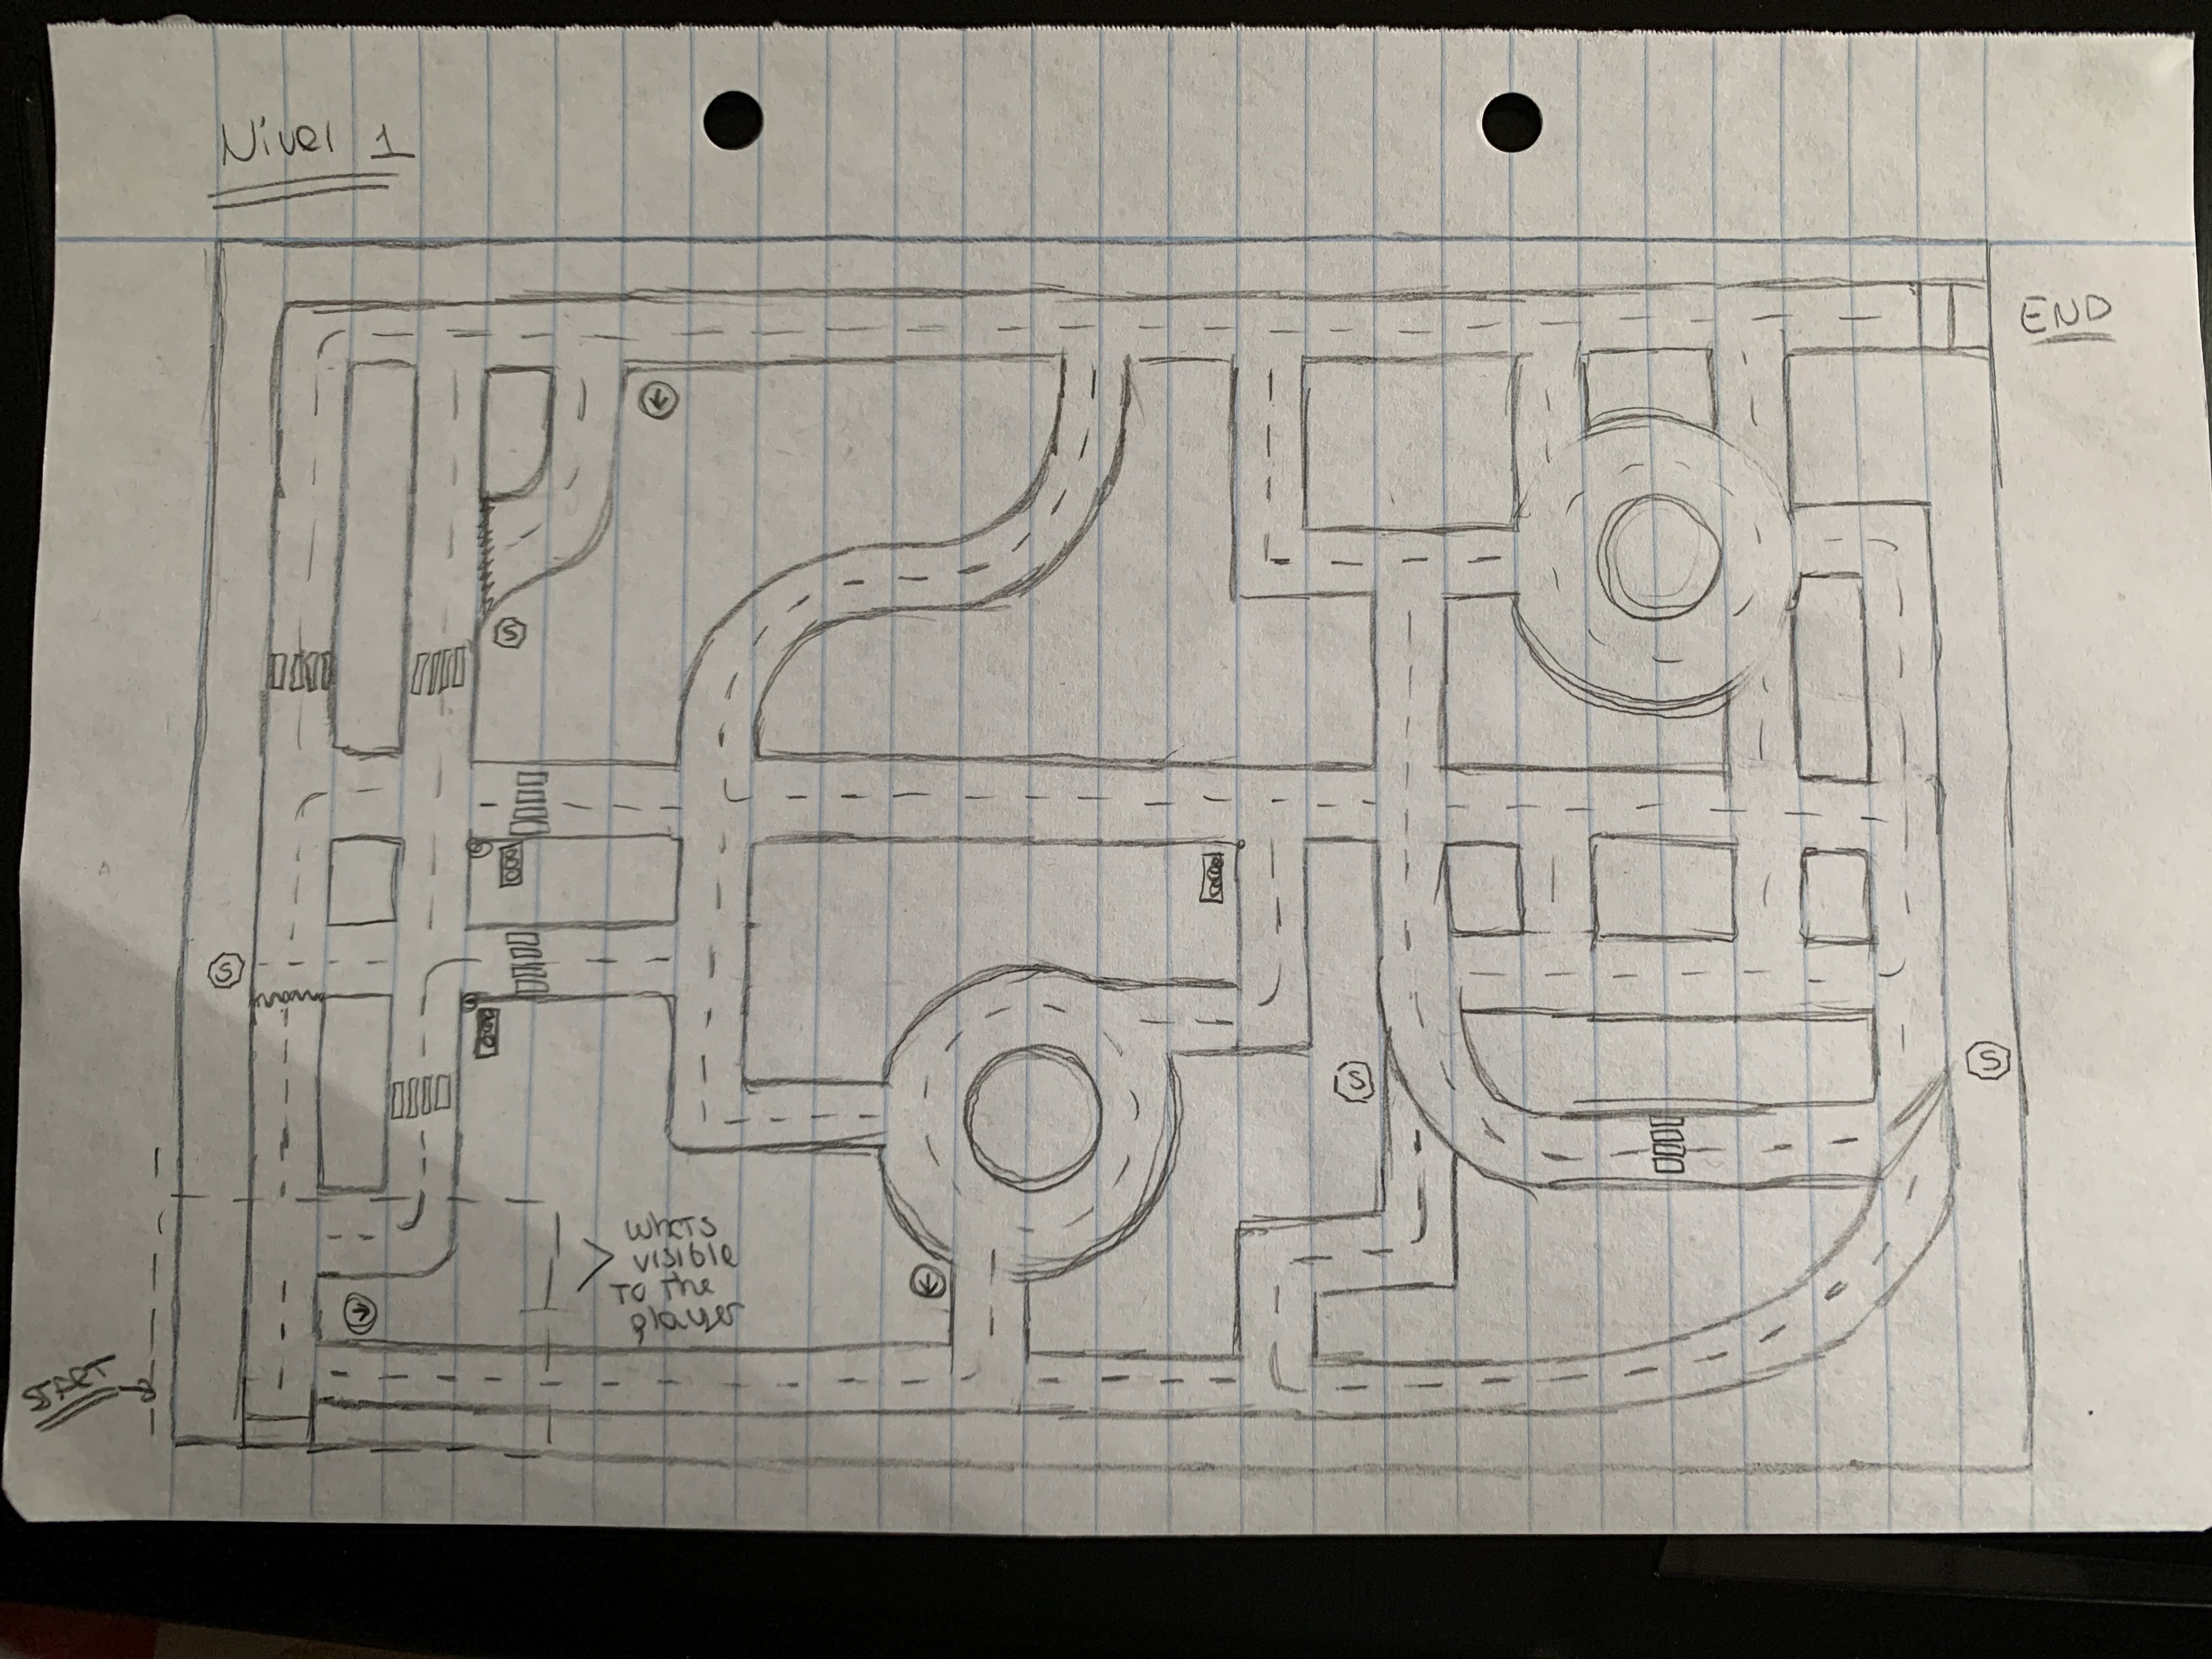 Nivel 1
END
S
S
S
S
whats
visible
to the
player
START